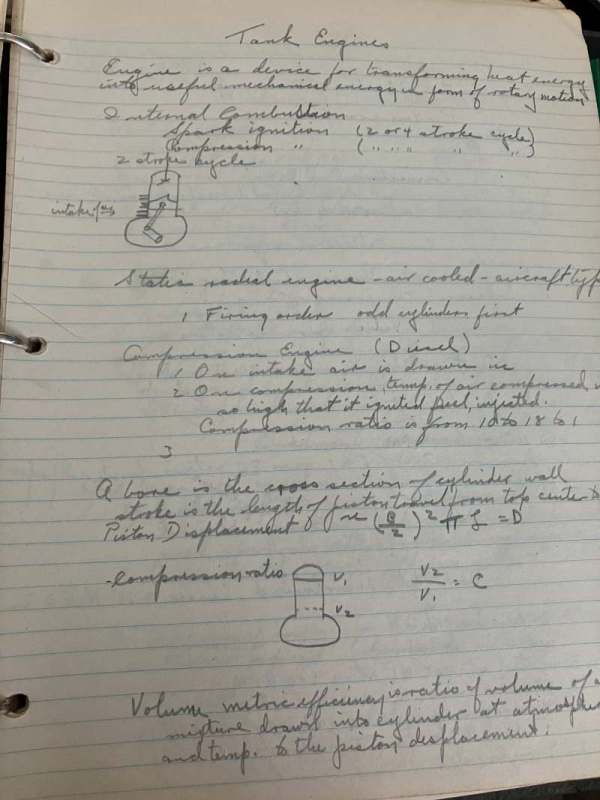 Tank Engines
Engine is a device for transforming heat energy
into useful mechanical energy in form of rotary motion
Internal Combustion
Spark ignition (2 or 4 stroke cycle)
Compression " ( " " " " " )
2 stroke cycle
intake
Static radial engine - air cooled - aircraft type
1 Firing order odd cylinders first
Compression Engine (Diesel)
1 On intake air is drawn in
2 On compression, temp. of air compressed
so high that it ignited fuel, injected.
Compression ratio is from 10 to 18 to 1
3
A bore is the cross section of cylinder wall
stroke is the length of piston travel from top center
Piston Displacement (B/2)² π L = D
Compression ratio V₁ V₂ V2/V1 = C
Volume metric efficiency is ratio of volume of
mixture drawn into cylinder at atmosphe
and temp. to the piston displacement.